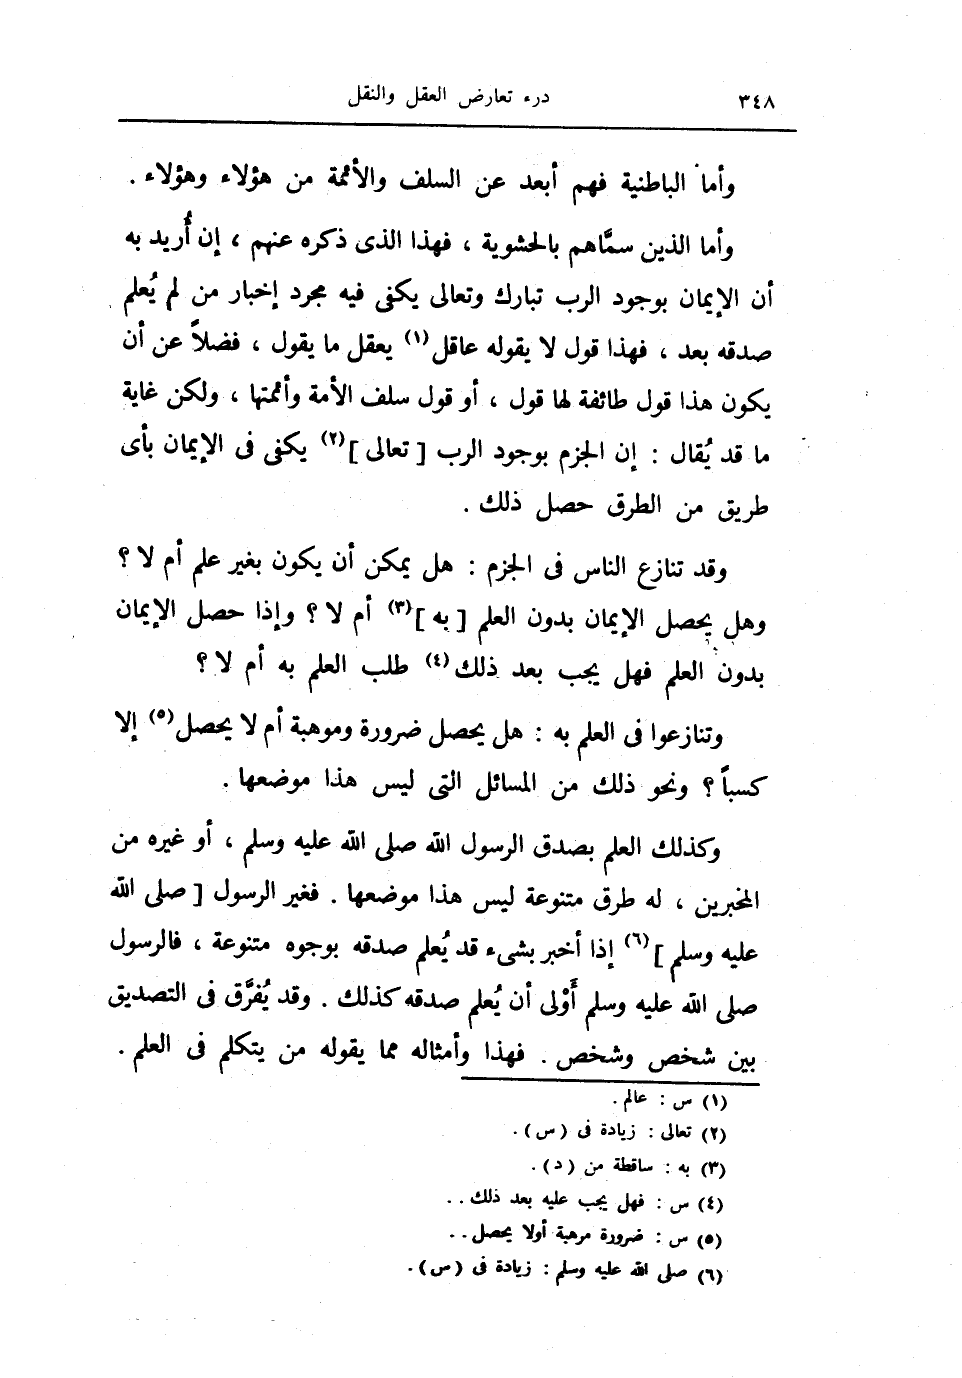 ٣٤٨ درء تعارض العقل والنقل
وأما الباطنية فهم أبعد عن السلف والأئمة من هؤلاء وهؤلاء .
وأما الذين سمَّاهم بالحشوية ، فهذا الذى ذكره عنهم ، إن أُريد به
أن الإيمان بوجود الرب تبارك وتعالى يكفى فيه مجرد إخبار من لم يُعلم
صدقه بعد ، فهذا قول لا يقوله عاقل(١) يعقل ما يقول ، فضلاً عن أن
يكون هذا قول طائفة لها قول ، أو قول سلف الأمة وأئمتها ، ولكن غاية
ما قد يُقال : إن الجزم بوجود الرب [ تعالى ](٢) يكفى فى الإيمان بأى
طريق من الطرق حصل ذلك .
وقد تنازع الناس فى الجزم : هل يمكن أن يكون بغير علم أم لا ؟
وهل يحصل الإيمان بدون العلم [ به ](٣) أم لا ؟ وإذا حصل الإيمان
بدون العلم فهل يجب بعد ذلك(٤) طلب العلم به أم لا ؟
وتنازعوا فى العلم به : هل يحصل ضرورة وموهبة أم لا يحصل(٥) إلا
كسباً ؟ ونحو ذلك من المسائل التى ليس هذا موضعها .
وكذلك العلم بصدق الرسول الله صلى الله عليه وسلم ، أو غيره من
المخبرين ، له طرق متنوعة ليس هذا موضعها . فغير الرسول [ صلى الله
عليه وسلم ](٦) إذا أخبر بشىء قد يُعلم صدقه بوجوه متنوعة ، فالرسول
صلى الله عليه وسلم أَوْلى أن يُعلم صدقه كذلك . وقد يُفرَّق فى التصديق
بين شخص وشخص . فهذا وأمثاله مما يقوله من يتكلم فى العلم .
(١) س : عالم .
(٢) تعالى : زيادة فى ( س ) .
(٣) به : ساقطة من ( د ) .
(٤) س : فهل يجب عليه بعد ذلك . .
(٥) س : ضرورة مرهبة أولا يحصل . .
(٦) صلى الله عليه وسلم : زيادة فى ( س ) .